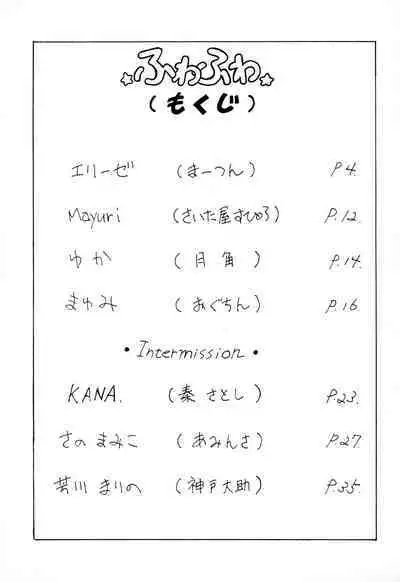 ふわふわ
(もくじ)
エリーゼ (まーつん) P.4.
Mayuri (さいた屋すひゅろ) P.12.
ゆか (月角) P.14.
まゆみ (おぐちん) P.16.
・Intermission・
KANA. (秦 さとし) P.23.
さの まみこ (あみんさ) P.27.
芳川 まりの (神戸大助) P.35.